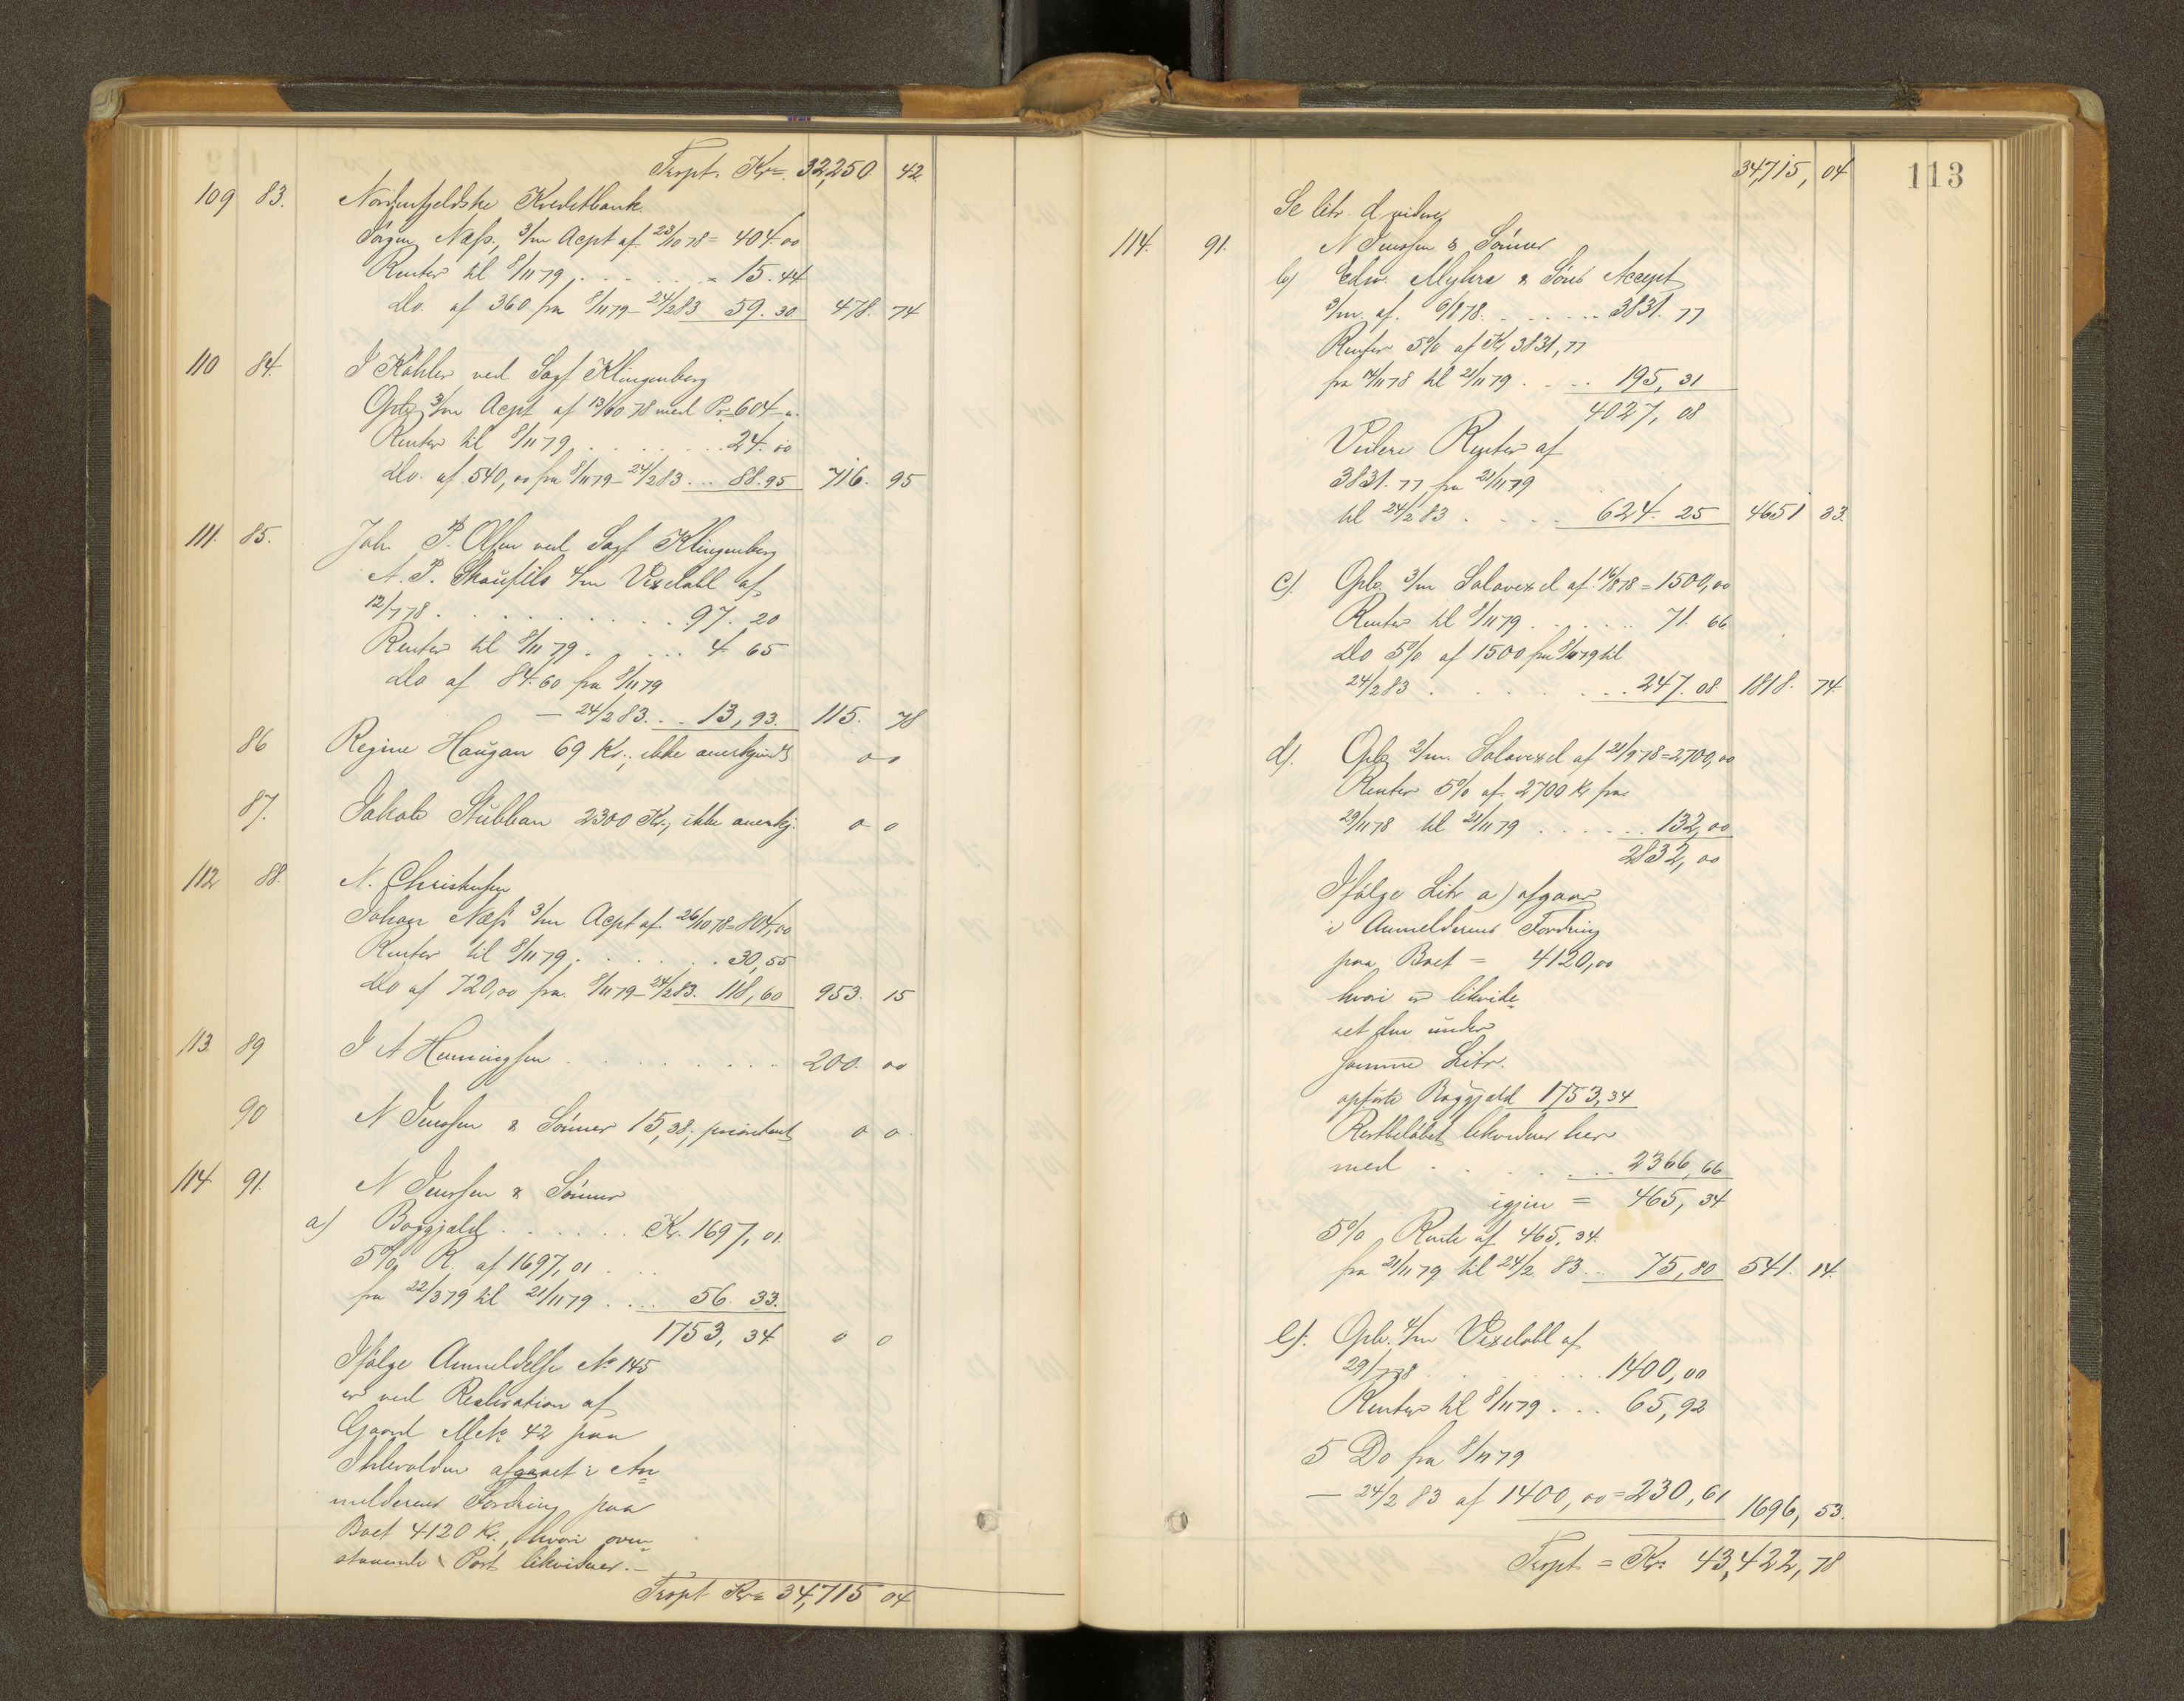 Trspt. Kr. 32,250 42
109 83. Nordenfjeldske Kreditbank
Jørgen Næss, 3/m Acpt af 23/10 78 = 404.00
Renter til 8/11 79 . . . . . - 15.44
Do. af 360 fra 8/11 79 - 24/2 83 59.30 478. 74
110 84. J Köhler ved Sagf Klingenberg
Gpb. 3/m Acpt af 13/10 78 med Pr. 604 "
Renter til 8/11 79 . . . . . . 24.00
Do. af 540,00 fra 8/11 79 - 24/2 83 . . 88.95 716. 95
111. 85. Joh. P. Olsen ved Sagf Klingenberg
A. P. 4/m Vexelobl af
12/7 78 . . . . . . . . . . 97.20
Renter til 8/11 79 . . . . 4 65
Do af 84.60 fra 8/11 79
— 24/2 83 . . . 13,93. 115. 78
86 Regine Haugan 69 Kr.; ikke anerkjendt 0 0
87. Jakob Stubban 2300 Kr.; ikke anerkj. 0 0
112 88. N. Christensen
Johan Næss 3/m Acpt af 26/10 78 = 804,00
Renter til 8/11 79 . . . . . . 30,55
Do af 720,00 fra 8/11 79 - 24/2 83. 118,60 953. 15
113 89 J A Henningsen . . . . . . . . 200. 00
90 N Jenssen & Sönner 15,38; prioritert 0 0
114 91. N Jenssen & Sönner
a) Boggjæld . . . . . . Kr. 1697,01.
5% R. af 1697,01 . . .
fra 22/3 79 til 21/11 79 . . . . 56. 33.
1753, 34 0 0
Ifölge Anmeldelse No 145
er ved Realisation af
Gaard Mtr 42 paa
Ihlevolden afgaaet i An
melderens Fordring paa
Boet 4120 Kr., hvori oven
staaende Post likvideres.—
Trspt Kr= 34,715 04
113
34,715, 04
Se litr. d. videre
114. 91. N Jenssen & Sönner
b) Edw. Myhre & Söns Accept
3/m. af 6/8 78 . . . . . . 3831. 77
Renter 5% af Kr 3831,77
fra 14/11 78 til 21/11 79 . . . . 195, 31
4027, 08
Videre Renter af
3831. 77 fra 21/11 79
til 24/2 83 . . . . 624. 25 4651 33.
c). Gpb. 3/m Solavexel af 16/8 78 = 1500,00
Renter til 8/11 79 . . . . . . 71. 66
Do 5% af 1500 fra 8/11 79 til
24/2 83 . . . . . . . 247. 08 1818. 74.
d). Gpb 2/m. Solavexel af 21/9 78 = 2700,00
Renter 5% af 2700 Kr fra
29/11 78 til 21/11 79 . . . . . . 132,00
2832,00
Ifölge Litr a) afgaar
i Anmelderens Fordring
paa Boet = 4120,00
hvori er likvide
ret den under
samme Litr.
opförte Boggjæld 1753,34
Restbelöbet likvideres her
med . . . . . . . 2366,66
igjen = 465, 34
5% Rente af 465, 34.
fra 21/11 79 til 24/2 83 . . 75,80 541. 14.
e). Gpb. 4/m Vexelobl af
29/7 78 . . . . . . 1400,00
Renter til 8/11 79 . . . 65,92
5 Do fra 8/11 79
— 24/2 83 af 1400,00 = 230,61 1696, 53.
Trspt = Kr. 43,422, 78